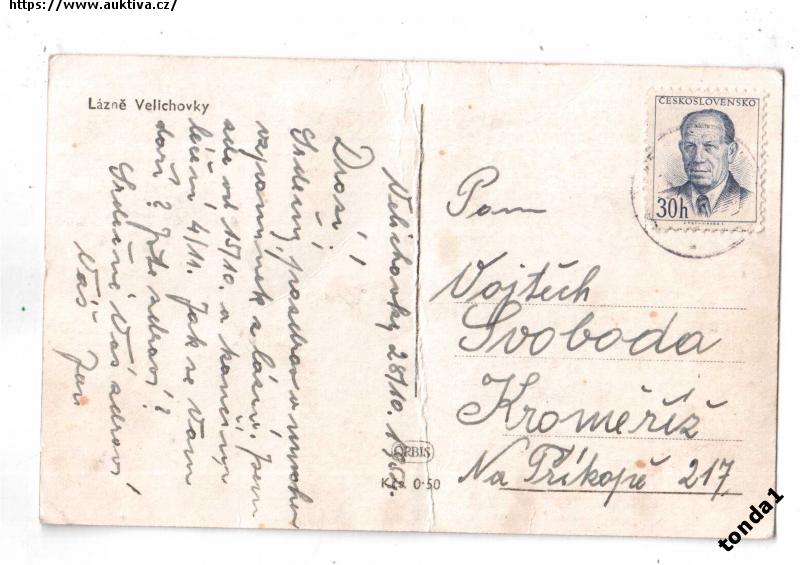 https://www.auktiva.cz/
Lázně Velichovky
Velichovky 28/10. 195
Drozí!
Srdečný pozdrav a mnoho
vzpomínek z lázní. Jsem
zde od 15/10. a končím
léčení 4/11. Jak se Vám
daří? Jste zdraví?
Srdečně Vás zdraví
Váš Jan
ORBIS
Kčs 0·50
ČESKOSLOVENSKO
30h
Pan
Vojtěch
Svoboda
Kroměříž
Na Příkopě 217
tonda1